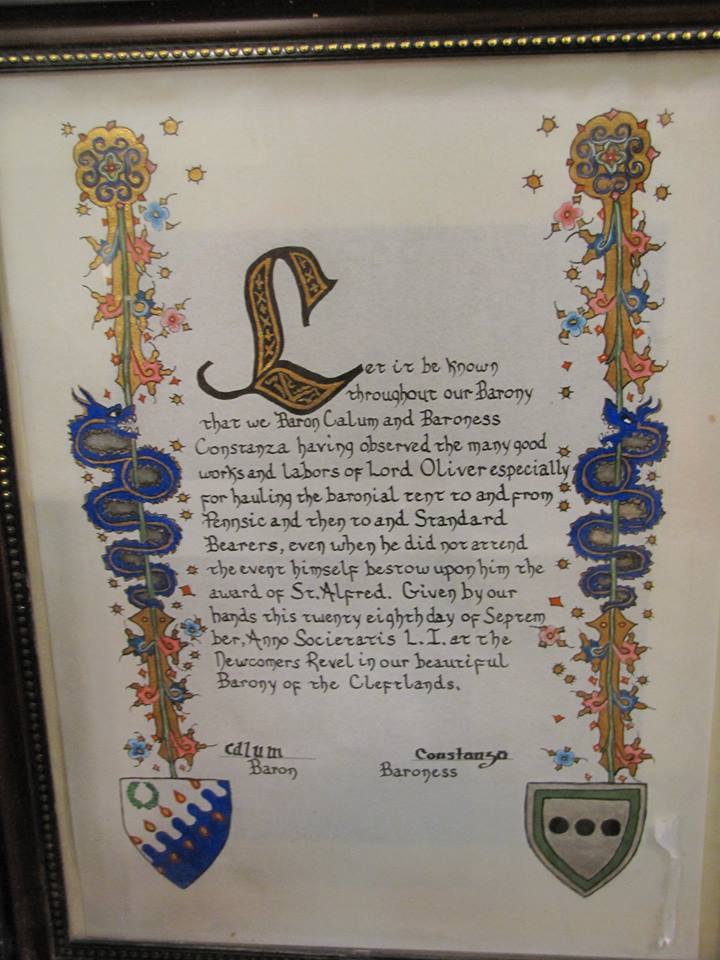 Let it be known
throughout our Barony
that we Baron Calum and Baroness
Constanza having observed the many good
works and labors of Lord Oliver especially
for hauling the baronial tent to and from
Pennsic and then to and Standard
Bearers, even when he did not attend
the event himself bestow upon him the
award of St. Alfred. Given by our
hands this twenty eighth day of Septem
ber, Anno Societatis L.I. at the
Newcomers Revel in our beautiful
Barony of the Cleftlands.
Calum Constanza
Baron Baroness